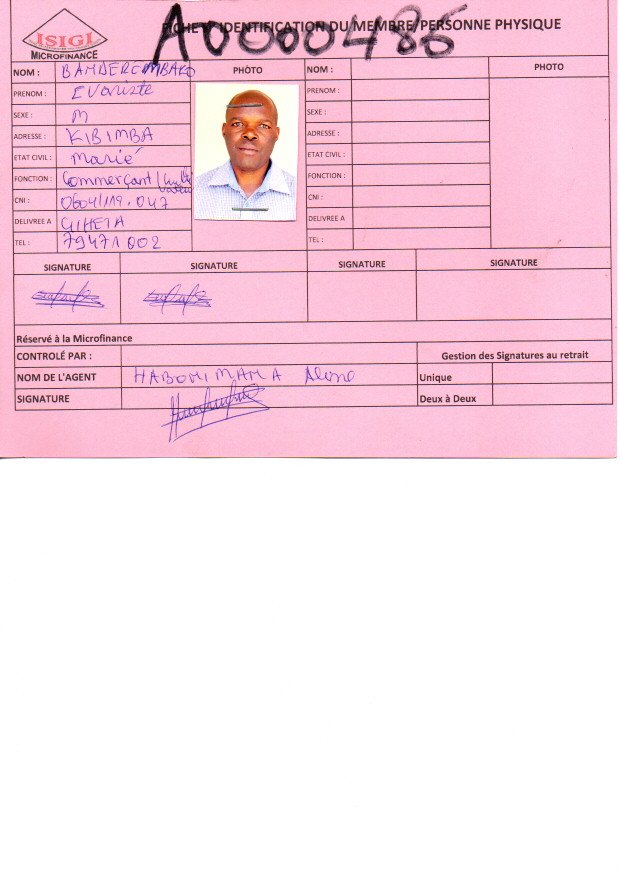 ISIGI
MICROFINANCE
FICHE D'IDENTIFICATION DU MEMBRE/PERSONNE PHYSIQUE
A0000486
NOM :
PHOTO
NOM :
PHOTO
PRENOM : Evariste
PRENOM :
SEXE : M
SEXE :
ADRESSE : KIBIMBA
ADRESSE :
ETAT CIVIL : Marié
ETAT CIVIL :
FONCTION : Commerçant /
FONCTION :
CNI : 0604/119.047
CNI :
DELIVREE A GIHETA
DELIVREE A
TEL : 79471002
TEL :
SIGNATURE SIGNATURE SIGNATURE SIGNATURE
Réservé à la Microfinance
CONTROLÉ PAR : Gestion des Signatures au retrait
NOM DE L'AGENT Unique
SIGNATURE Deux à Deux